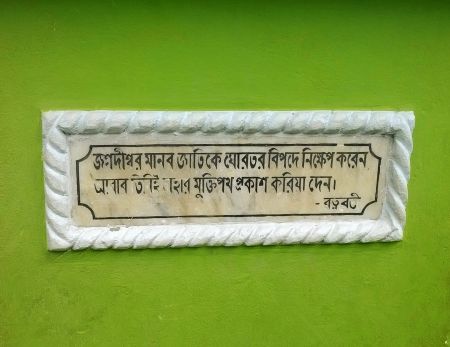 জগদীশ্বর মানব জাতিকে ঘোরতর বিপদে নিক্ষেপ করেন,
আবার তিনিই মুক্তিপথ প্রকাশ করিয়া দেন।
- রত্নবতী